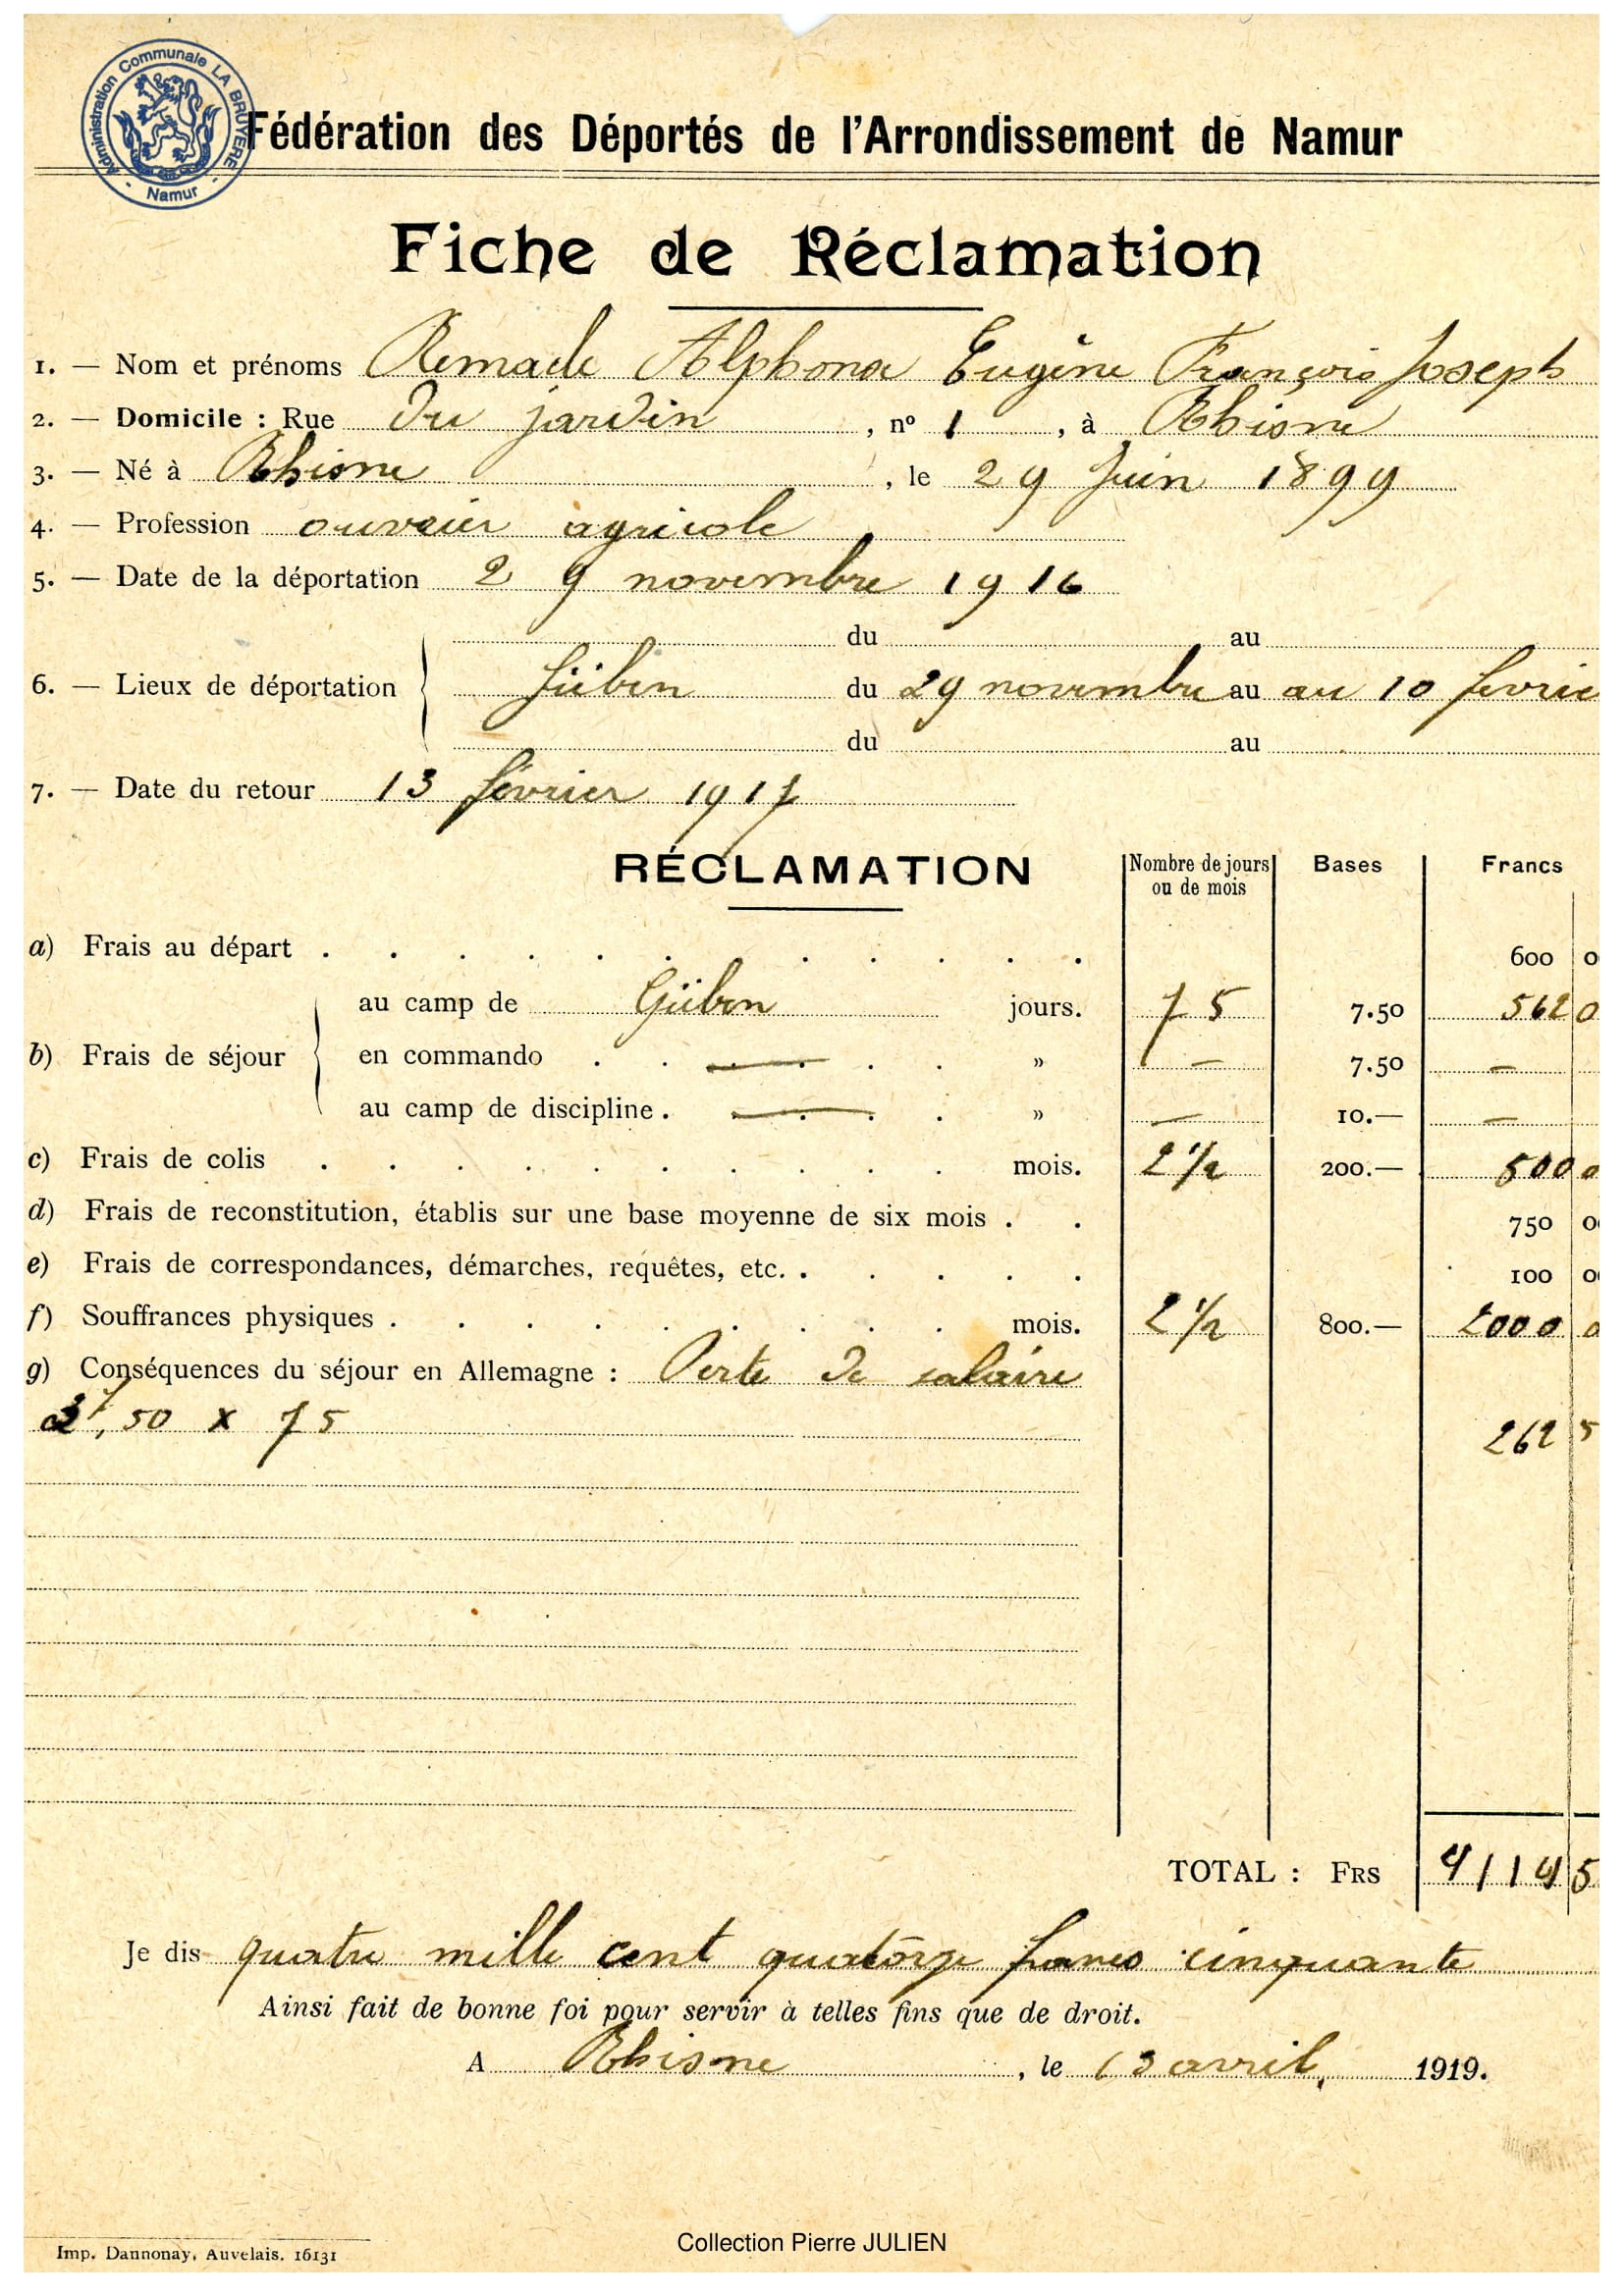 Administration Communale LA BRUYERE - Namur -
Fédération des Déportés de l'Arrondissement de Namur
Fiche de Réclamation
1. — Nom et prénoms Remacle Alphonse Eugène François Joseph
2. — Domicile : Rue du jardin , nº 1 , à Rhisne
3. — Né à Rhisne , le 29 Juin 1899
4. — Profession ouvrier agricole
5. — Date de la déportation 29 novembre 1916
du au
6. — Lieux de déportation Güben du 29 novembre au au 10 févrie
du au
7. — Date du retour 13 février 1917
RÉCLAMATION Nombre de jours ou de mois Bases Francs
a) Frais au départ . . . . . . . . . . . 600 0
au camp de Güben jours. 75 7.50 562 0
b) Frais de séjour en commando . . — . . » — 7.50 —
au camp de discipline . — . » — 10.— —
c) Frais de colis . . . . . . . . . . mois. 2 1/2 200.— 500 0
d) Frais de reconstitution, établis sur une base moyenne de six mois . . 750 0
e) Frais de correspondances, démarches, requêtes, etc. . . . . . 100 0
f) Souffrances physiques . . . . . . . . . mois. 2 1/2 800.— 2000 0
g) Conséquences du séjour en Allemagne : Perte de salaire
,50 x 75 262 5
TOTAL : FRS 4114 5
Je dis quatre mille cent quatorze francs cinquante
Ainsi fait de bonne foi pour servir à telles fins que de droit.
A Rhisne , le 13 avril. 1919.
Collection Pierre JULIEN
Imp. Dannonay, Auvelais. 16131